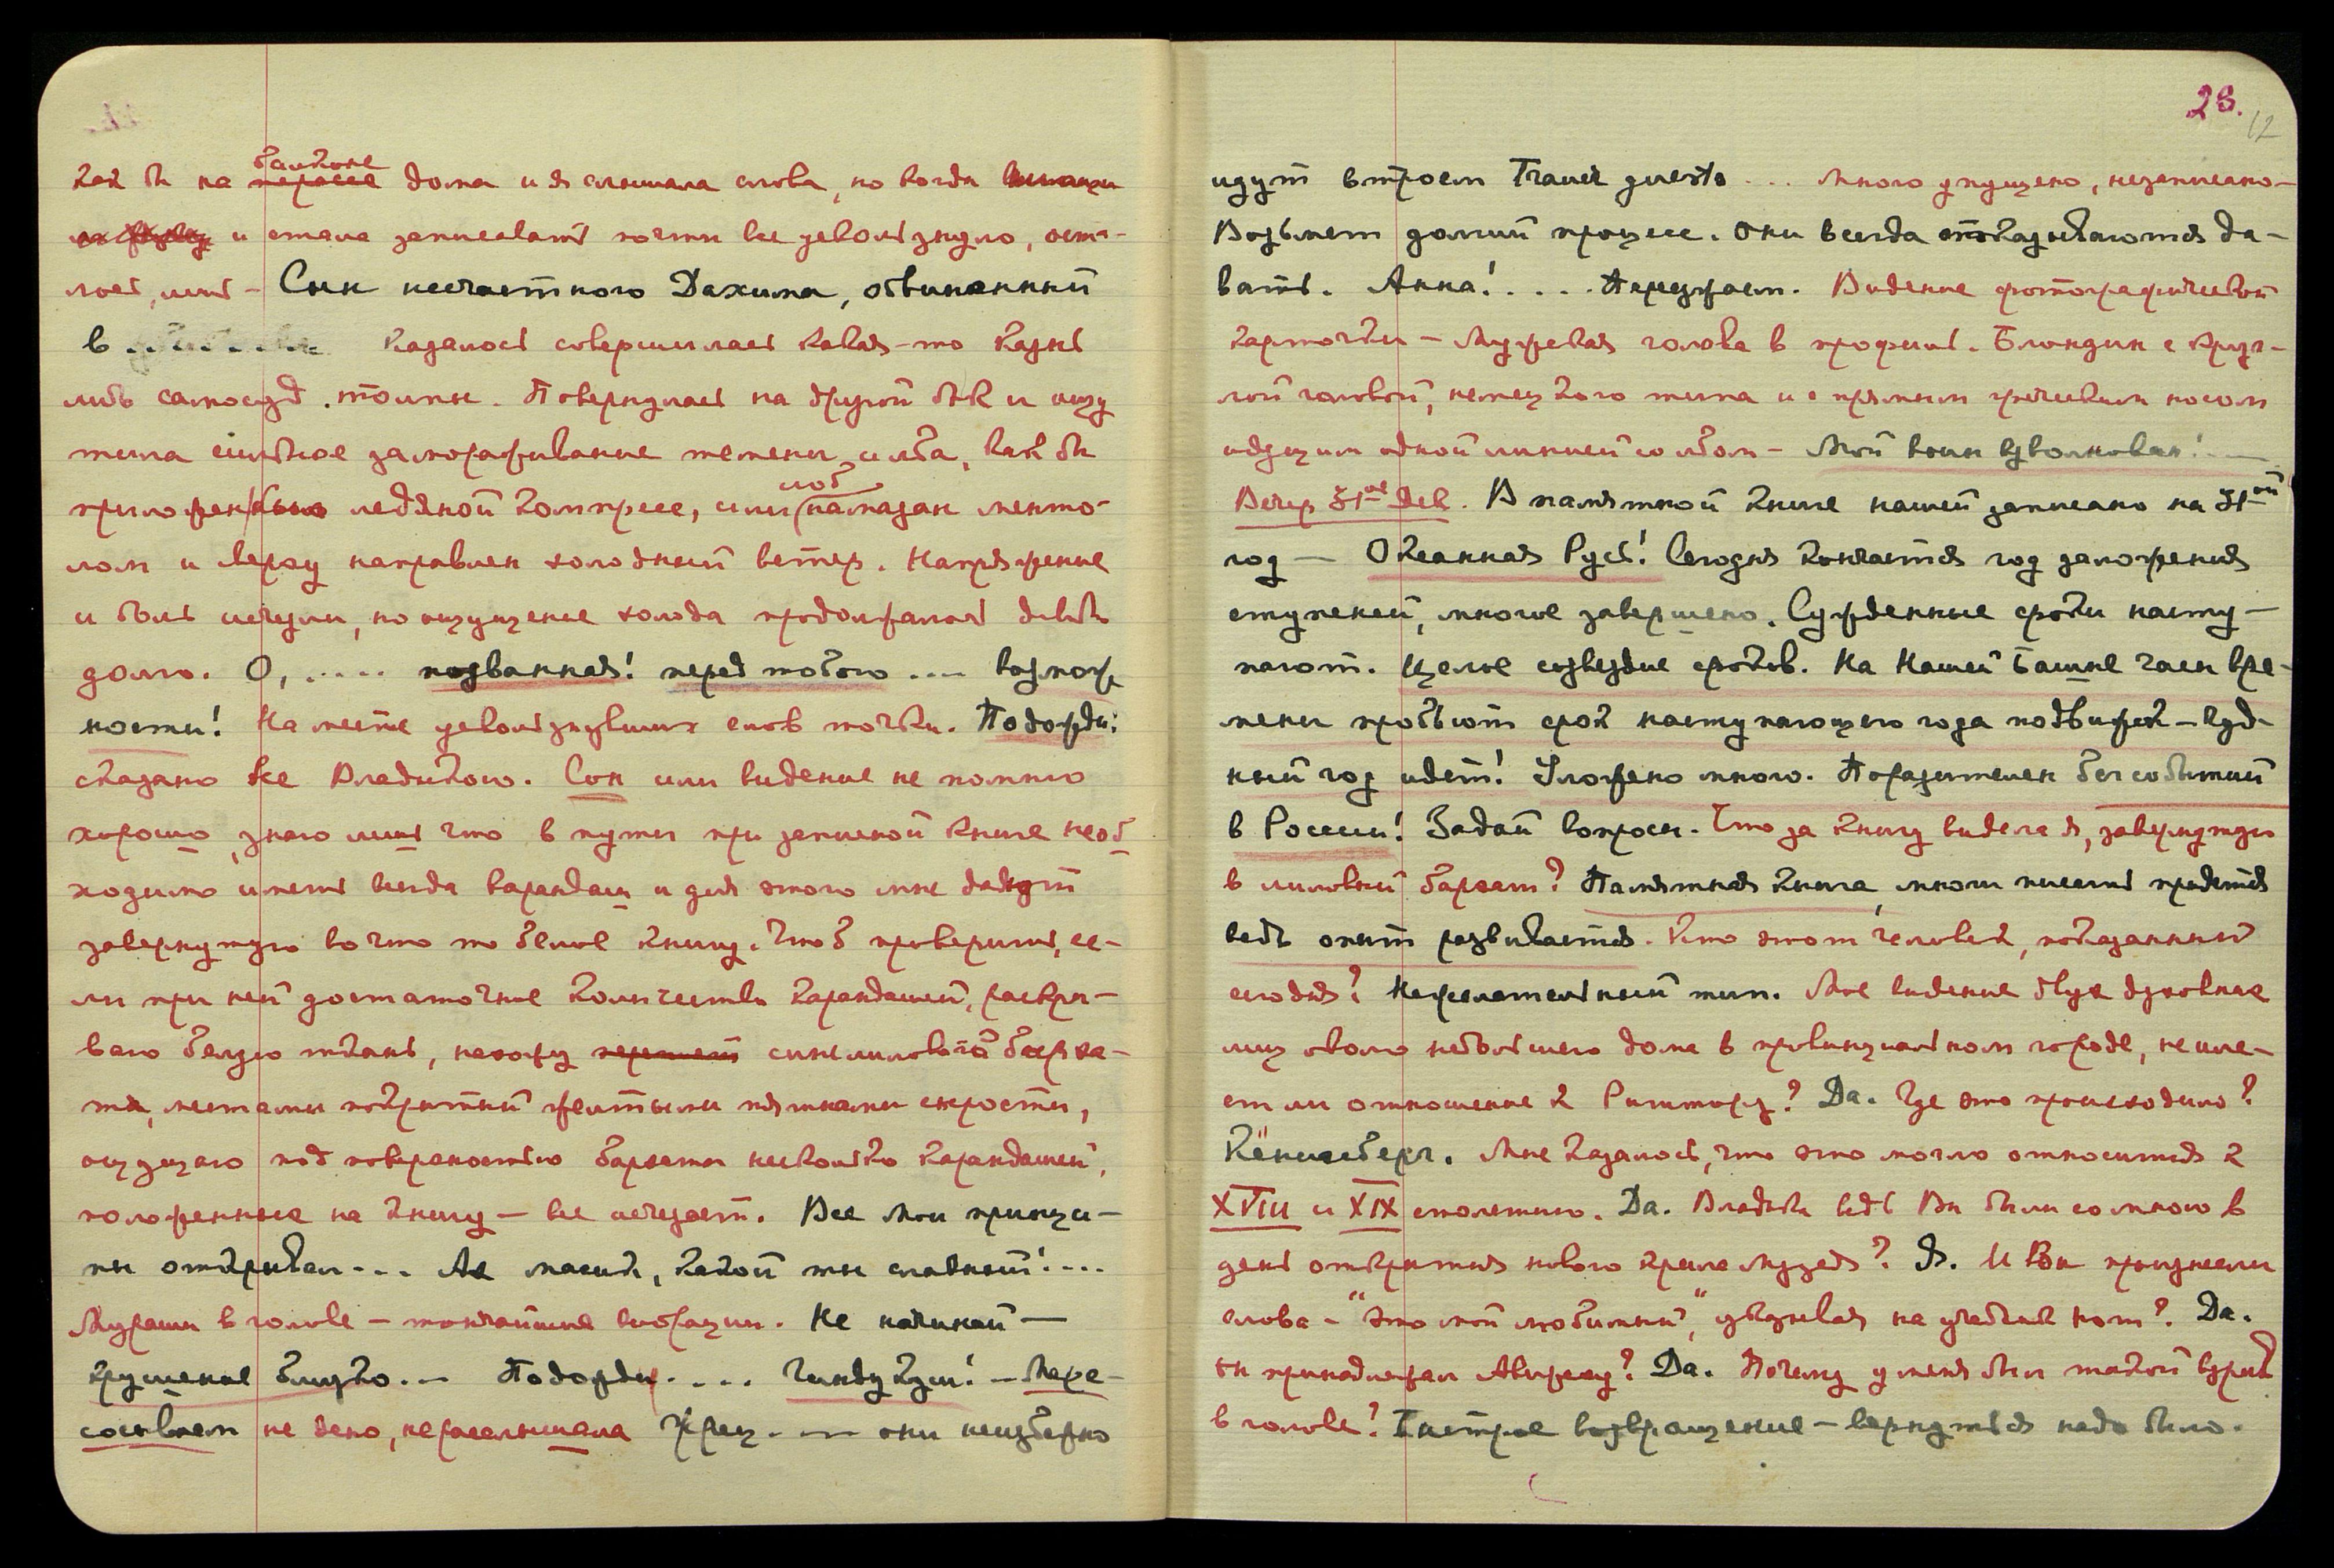 как бы на террасе балконе дома и я слышала слова, но когда
и стала записывать почти все ускользнуло, оста-
лось, лишь - Сын несчастного Дахима, обвиненный
в ........ Казалось совершилась какая-то казнь
либо самосуд толпы. Повернулась на другой бок и ощу
тила сильное замораживание темени и лба, как бы
приложен был ледяной компресс, или лоб намазан менто-
лом и сверху направлен холодный ветер. Напряжение
и боль исчезли, но ощущение холода продолжалось довольно
долго. О, ..... позванная! перед тобою .... возмож
ности! На месте ускользнувших слов точки. Подожди:
сказано все Владыкою. Сон или видение не помню
хорошо, знаю лишь что в пути при записной книге необ
ходимо иметь всегда карандаш и для этого мне дадут
завернутую во что то белое книгу. Чтоб проверить, ес-
ли при ней достаточное количество карандашей, раскры-
ваю белую ткань, нахожу сине лиловый бархат
местами покрытый желтыми пятнами сырости,
ощущаю под поверхностью бархата несколько карандашей,
положенные на книгу - все исчезает. Все мои принци-
пы открывал... Ах масик, какой ты славный!...
Мураши в голове - тончайшие вибрации. Не начинай —
крушение близко... Подожди .... Гиндукуш! - Пере-
сосываем не ясно, нерасслышала Жрец .... они неизбежно
28.
12
идут втроем Traver questo ... Много упущено, незаписано -
Возьмет долгий процесс. Они всегда отказываются да-
вать. Анна! .... Переузнаем. Видение фотографической
карточки - Мужская голова в профиль. Блондин с круг-
лой головой, немецкого типа и с прямым греческим носом
идущим одной линией со лбом - Мой воин взволнован! —
Вечер 31ое Дек. В памятной книге нашей записано на 31ый
год — Океанная Русь! Сегодня кончается год заложения
ступеней, многое завершено. Сужденные сроки насту-
пают. Целое созвездие сроков. На Нашей Башне часы вре-
мени пробьют срок наступающего года подвижек - чуд-
ный год идет! Уложено много. Поразителен бег событий
в России! Задай вопросы. Что за книгу видела я, завернутую
в лиловый бархат? Памятная книга, много писать придется
ведь опыт развивается. Кто этот человек, показанный
сегодня? Нежелательный тип. Мое видение двух духовных
лиц около небольшого дома в провинциальном городе, не име-
ет ли отношение к Рихтору? Да. Где это происходило?
Кёнигсберг. Мне казалось, что это могло относиться к
XVIII и XIX столетию. Да. Владыка ведь Вы были со мною в
день открытия нового крыла Музея? Я. И Вы произнесли
слова - "Это мой любимый", указывая на улыбчив. Да.
он принадлежал Авирах? Да. Почему у меня был такой взрыв
в голове? Быстрое возвращение - вернуться надо было.